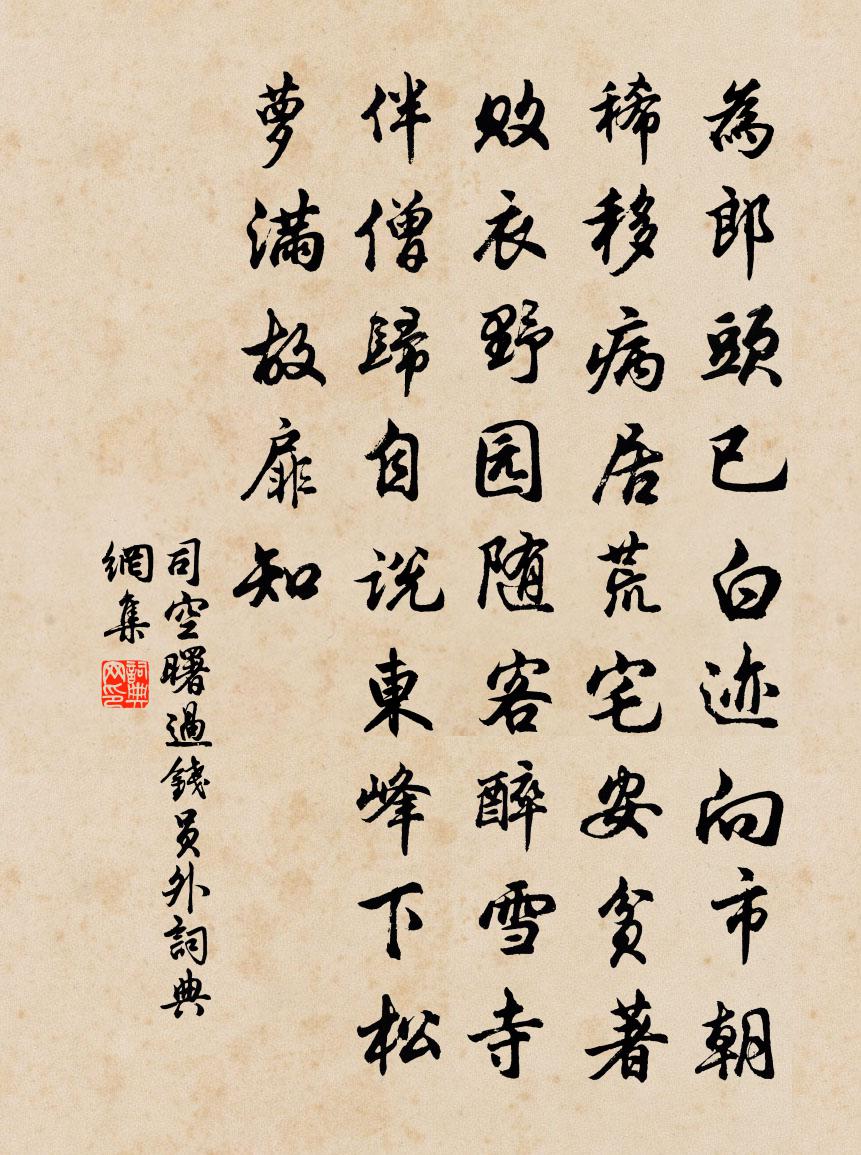 為郎頭已白迹向市朝
稀移病居荒宅安貧著
败衣野园随客醉雪寺
伴僧歸自说東峰下松
萝满故扉知
司空曙過錢员外詞典
網集
詞典
网印